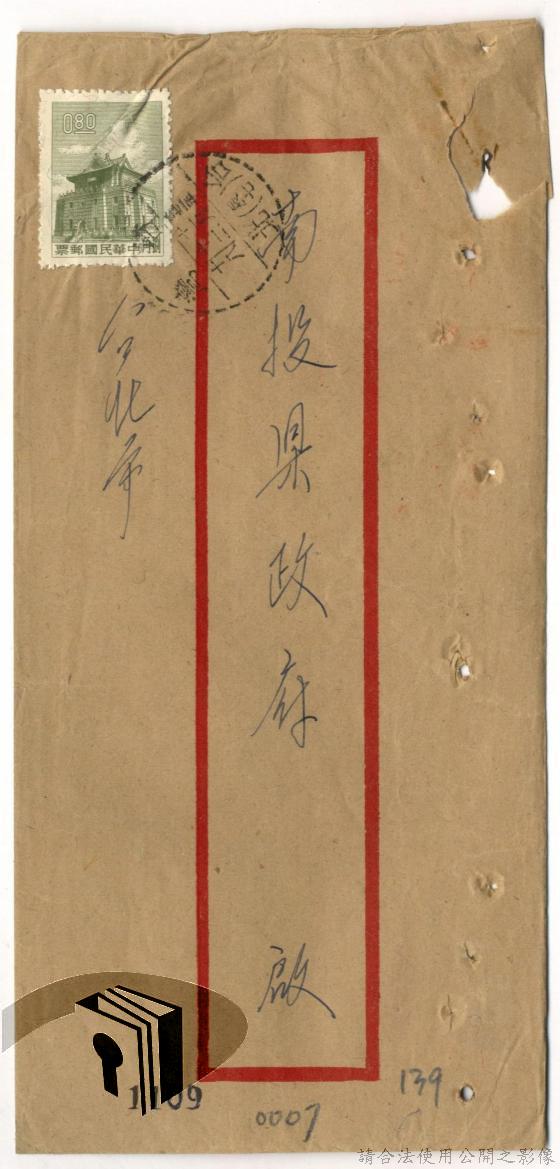 南投県政府 啟
台北市
0.80
中華民國郵票
1109
0007
139
請合法使用公開之影像